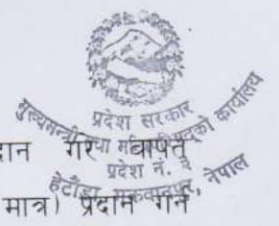 प्रदेश सरकार
मुख्यमन्त्री तथा मन्त्रिपरिषद्को कार्यालय
प्रदेश नं. ३
हेटौंडा, मकवानपुर, नेपाल
दान गरे बापत
मात्र) प्रदान गर्ने